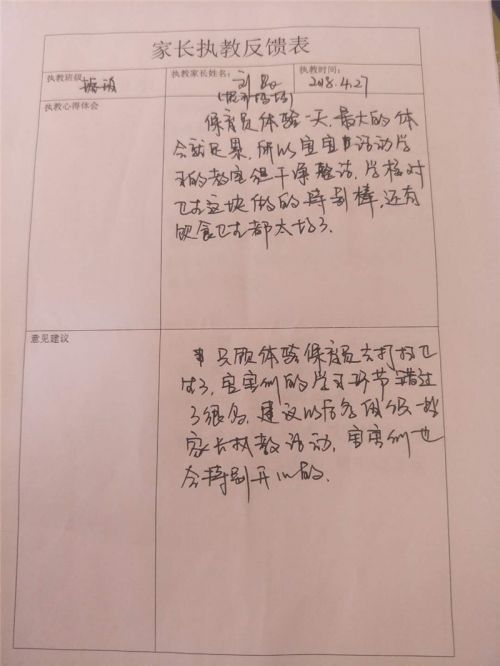 家长执教反馈表
执教班级 执教家长姓名：刘 执教时间：2018.4.27
(妈妈)
执教心得体会
保育员体验一天，最大的体
会就是累，所以宝宝活动学
习的教室很干净整洁，学校对
卫生这块做的特别棒，还有
饮食卫生都太好了。
意见建议
只顾体验保育员去打扫卫
生了，宝宝们的学习环节错过
了很多，建议以后多组织一些
家长执教活动，宝宝们也
会特别开心的。